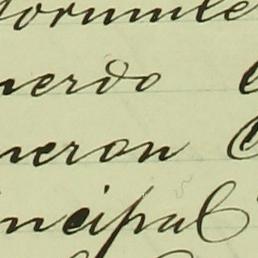 formule
nerdo
neron
incipal